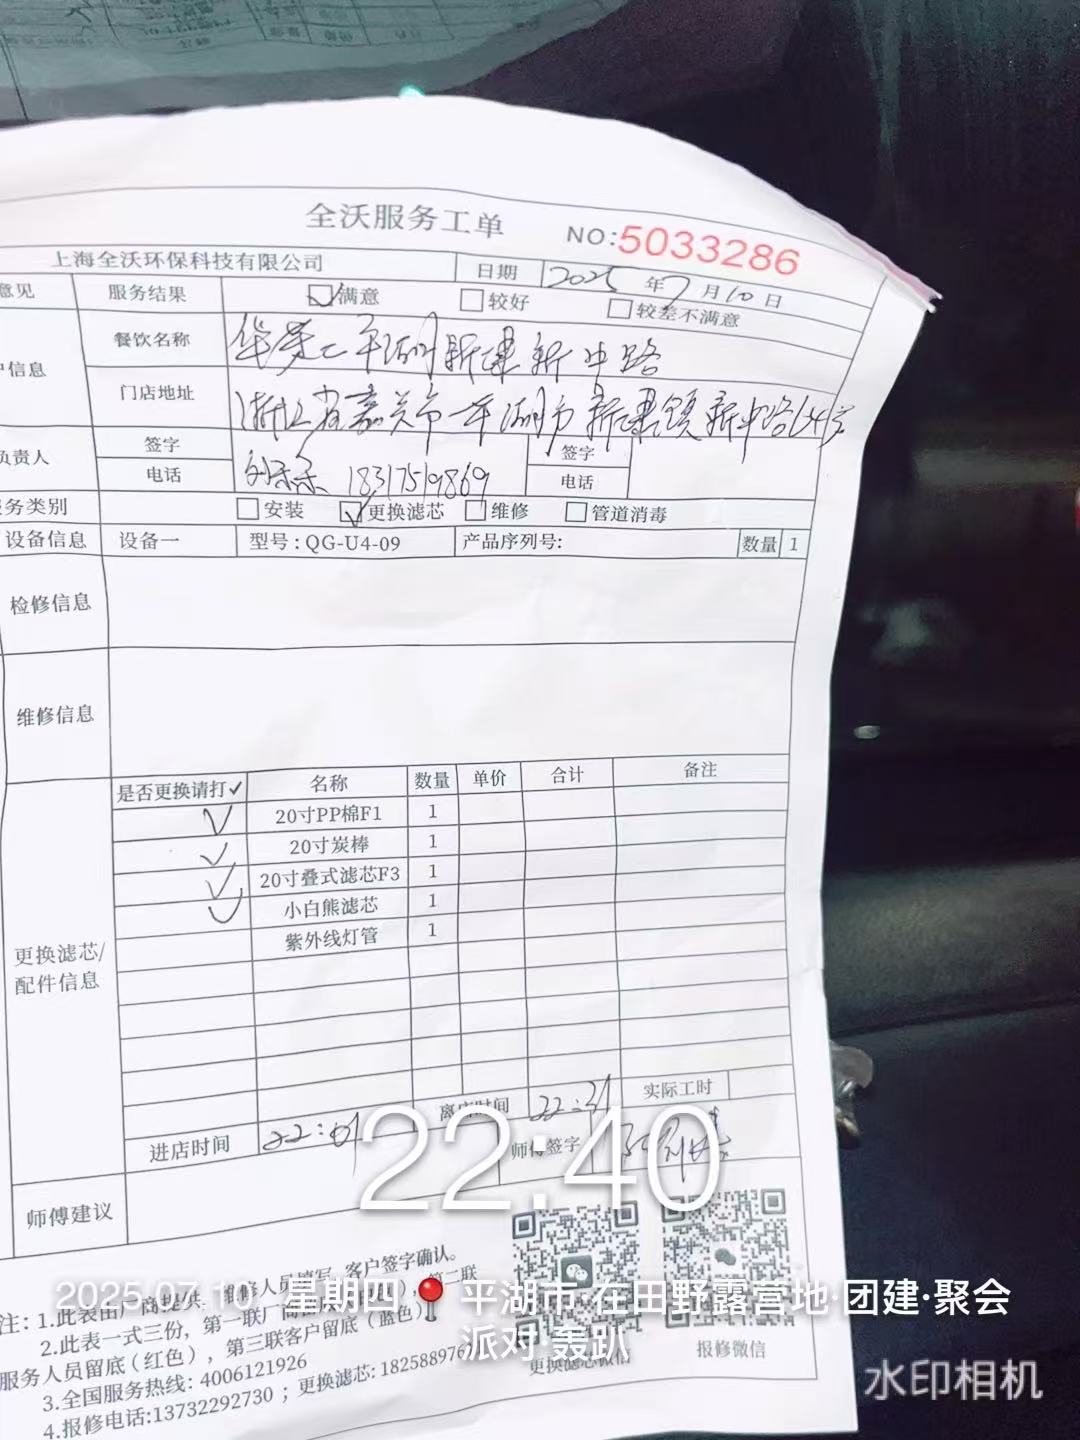 全沃服务工单
NO:5033286
上海全沃环保科技有限公司 日期 2025年7月10日
意见 服务结果 满意 较好 较差不满意
户信息 餐饮名称 华莱士平湖新建新中路
门店地址 浙江省嘉兴市平湖市新建镇新中路
负责人 签字 签字
电话 18317519869 电话
服务类别 安装 更换滤芯 维修 管道消毒
设备信息 设备一 型号:QG-U4-09 产品序列号: 数量 1
检修信息
维修信息
更换滤芯/
配件信息
是否更换请打✓ 名称 数量 单价 合计 备注
✓ 20寸PP棉F1 1
✓ 20寸炭棒 1
✓ 20寸叠式滤芯F3 1
✓ 小白熊滤芯 1
紫外线灯管 1
进店时间 22:01 离店时间 22:31 实际工时
师傅签字
师傅建议
22:40
注:1.此表由厂商提供,维修人员填写,客户签字确认。
2.此表一式三份,第一联厂商 第二联
服务人员留底(红色),第三联客户留底(蓝色)
3.全国服务热线:4006121926
4.报修电话:13732292730;更换滤芯:182588976
更换滤芯微信
报修微信
2025.07.10 星期四 平湖市·在田野露营地·团建·聚会
派对·轰趴
水印相机